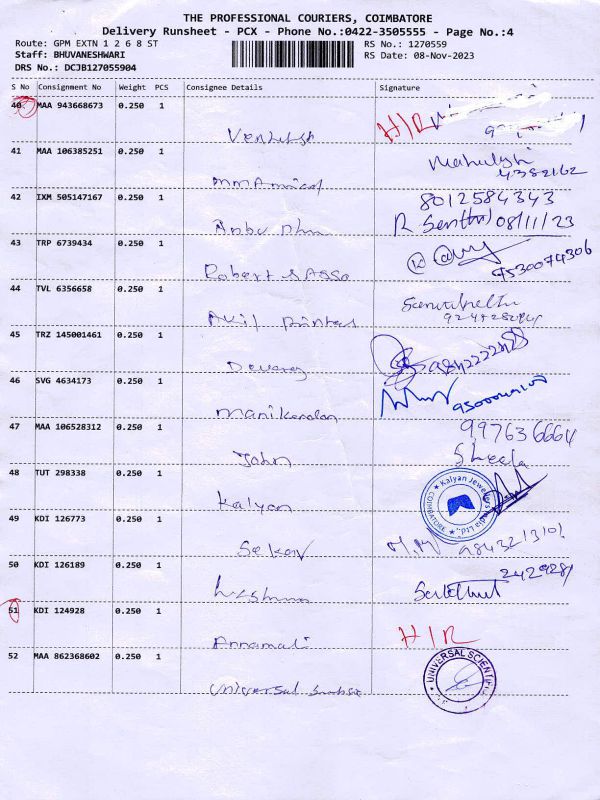 THE PROFESSIONAL COURIERS, COIMBATORE
Delivery Runsheet - PCX - Phone No.:0422-3505555 - Page No.:4
Route: GPM EXTN 1 2 6 8 ST
RS No.: 1270559
Staff: BHUVANESHWARI
RS Date: 08-Nov-2023
DRS No.: DCJB127055904
S No Consignment No Weight PCS Consignee Details Signature
40 MAA 943668673 0.250 1
H/R
41 MAA 106385251 0.250 1
4382162
42 IXM 505147167 0.250 1
8012584343
R Senthil 08/11/23
43 TRP 6739434 0.250 1
9530074306
Robert
44 TVL 6356658 0.250 1
45 TRZ 145001461 0.250 1
Devaraj
46 SVG 4634173 0.250 1
Manikandan
47 MAA 106528312 0.250 1
9976366664
John Sheela
48 TUT 298338 0.250 1
Kalyan Jewellers India Ltd.
COIMBATORE
Kalyan
49 KDI 126773 0.250 1
Sekar
50 KDI 126189 0.250 1
51 KDI 124928 0.250 1
Annamali H/R
52 MAA 862368602 0.250 1
UNIVERSAL SCIENTIFIC
Universal